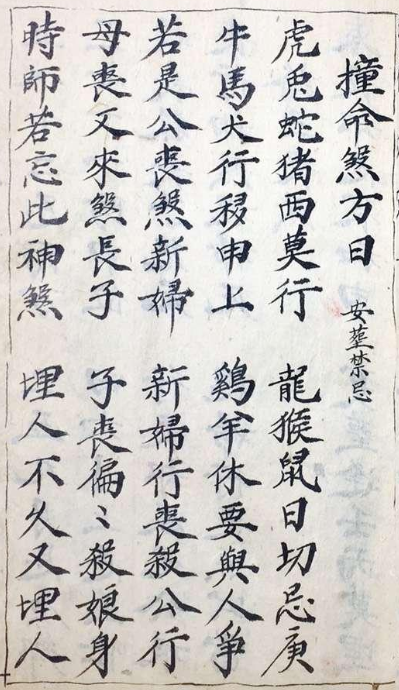 撞命煞方日 安葬禁忌
虎兎蛇猪西莫行 龍猴鼠日切忌庚
牛馬犬行移申上 鷄羊休要與人爭
若是公喪煞新婦 新婦行喪殺公行
母喪又來煞長子 子喪徧〻殺娘身
時師若忘此神煞 埋人不久又埋人